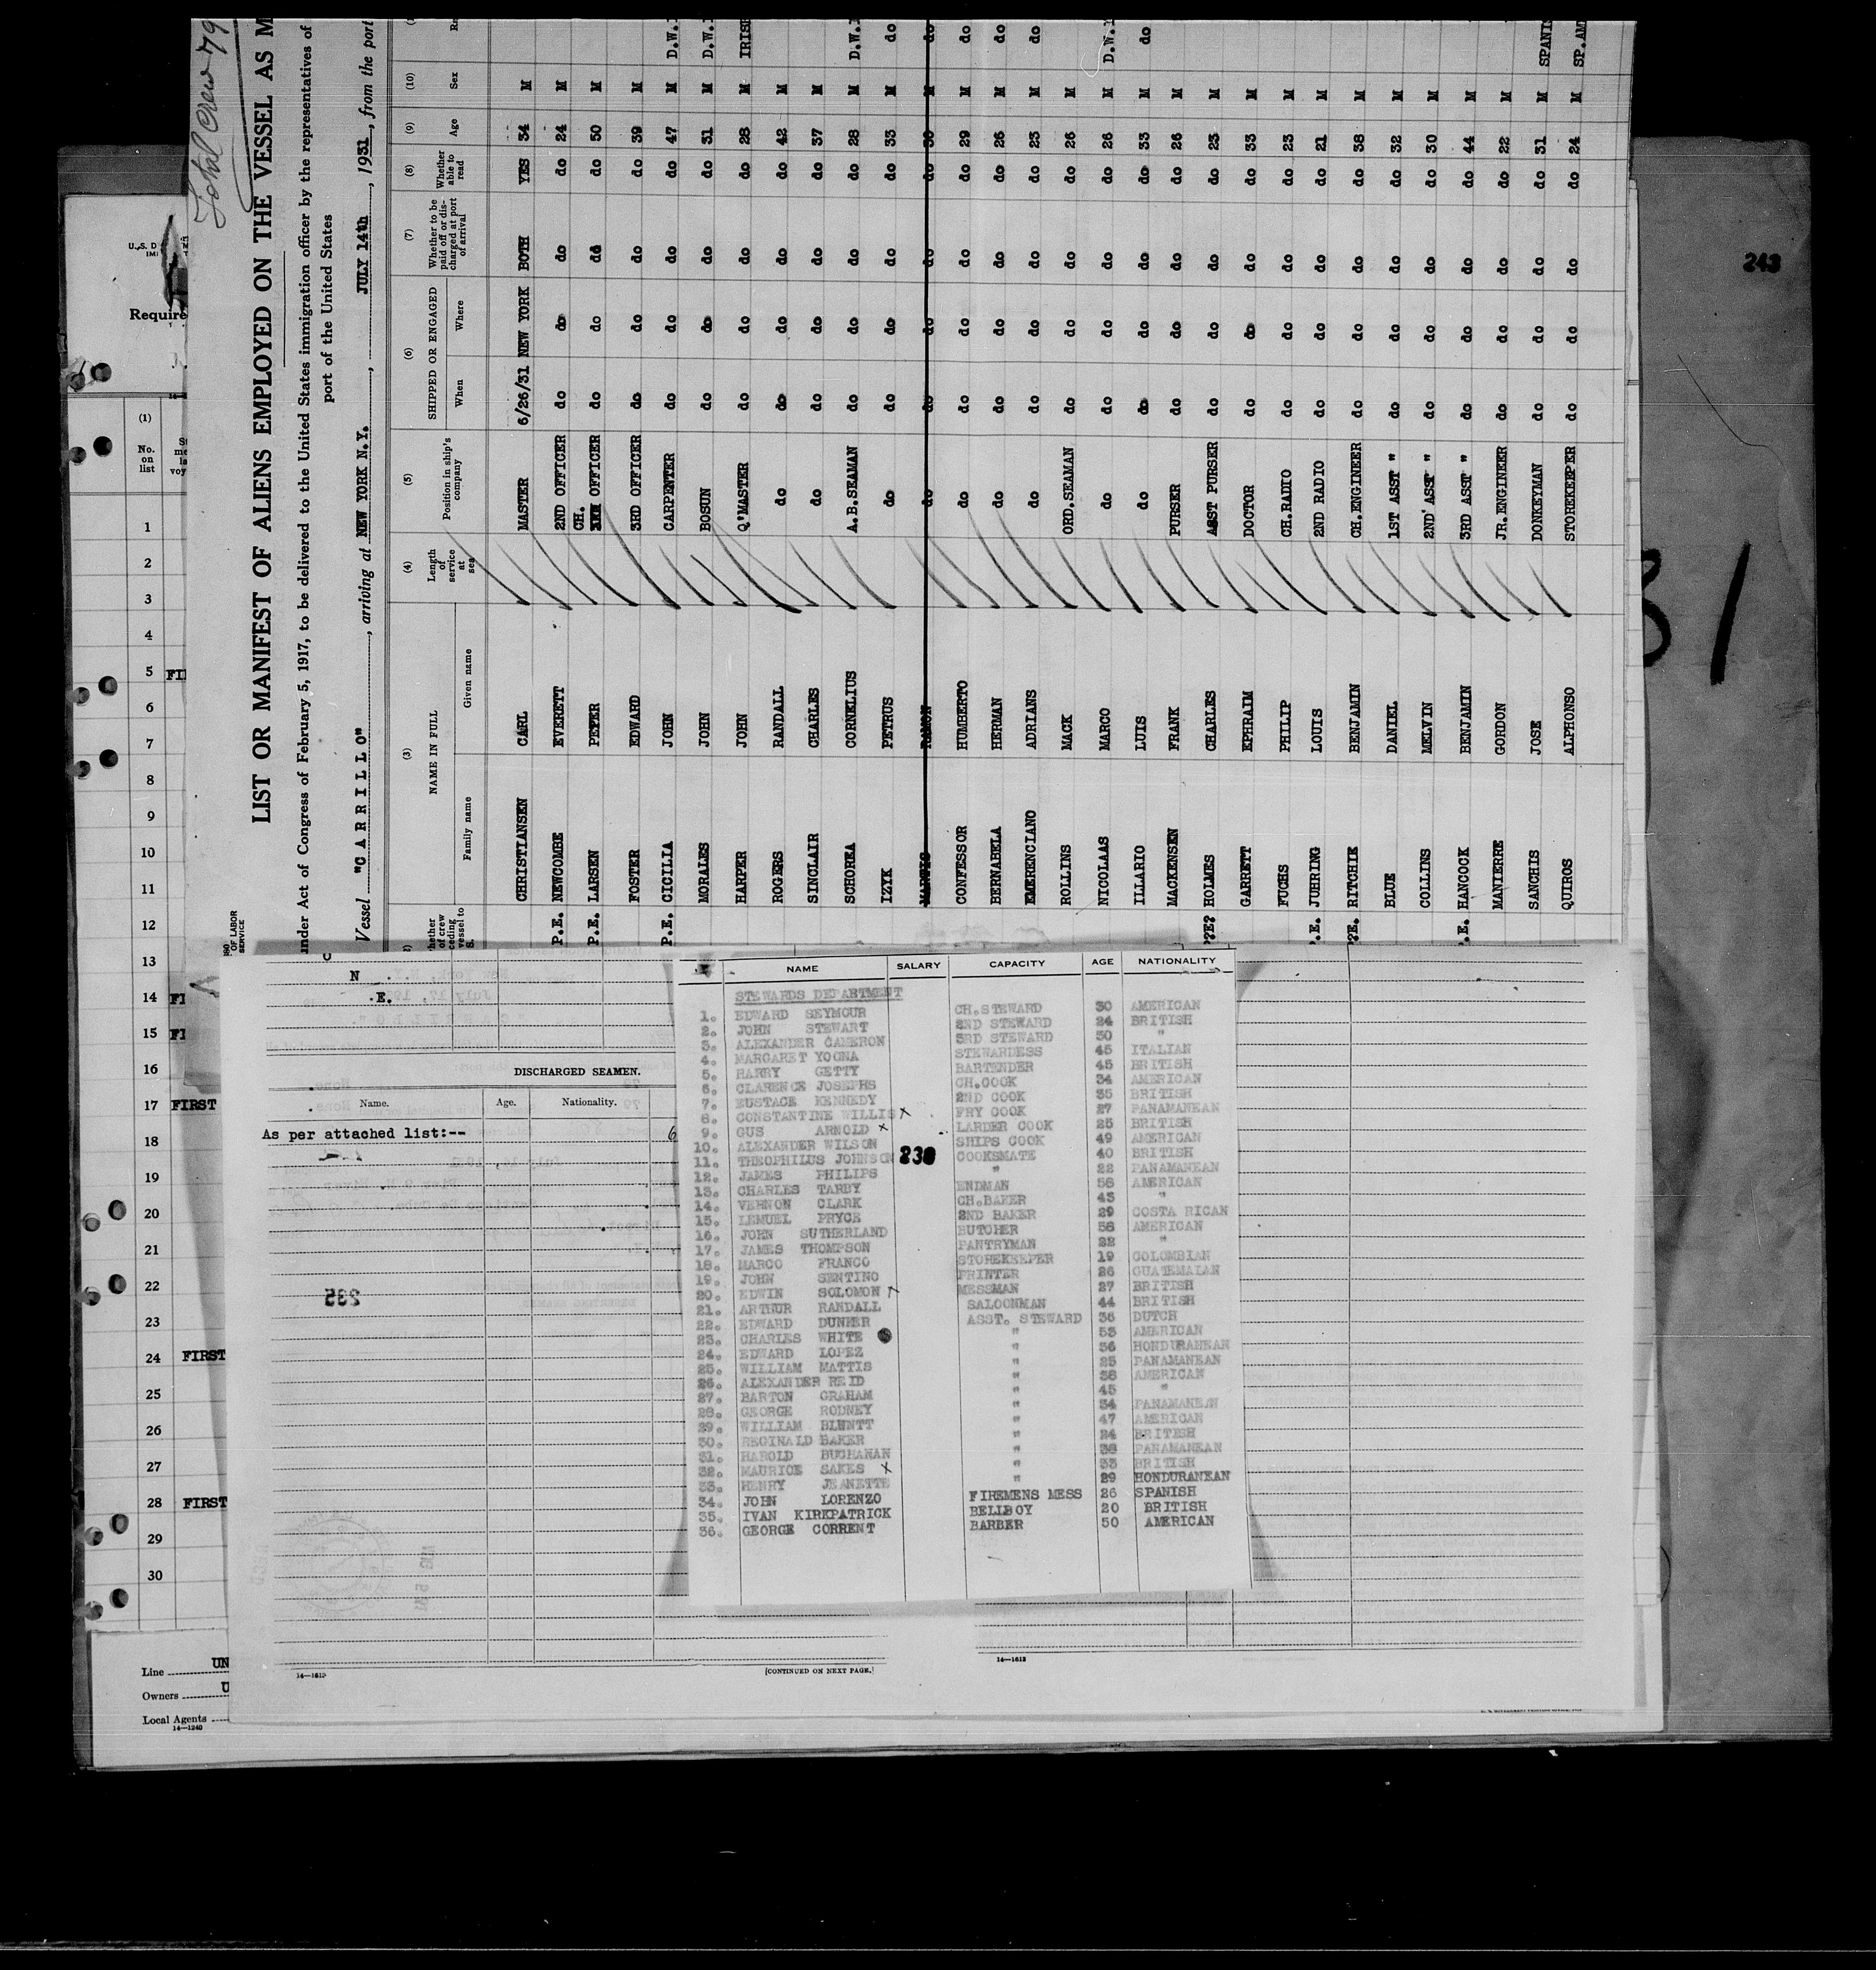 Total Crew 79
LIST OR MANIFEST OF ALIENS EMPLOYED ON THE VESSEL AS M
under Act of Congress of February 5, 1917, to be delivered to the United States immigration officer by the representatives of
port of the United States
Vessel "CARRILLO", arriving at NEW YORK N.Y., JULY 14th, 1931, from the port
(3) (4) (5) (6) (7) (8) (9) (10)
NAME IN FULL Length of service at sea Position in ship's company SHIPPED OR ENGAGED Whether to be paid off or discharged at port of arrival Whether able to read Age Sex
Family name Given name When Where
CHRISTIANSEN CARL MASTER 6/26/31 NEW YORK BOTH YES 34 M
P.E. NEWCOMBE EVERETT 2ND OFFICER do do do do 24 M
P.E. LARSEN PETER CH. OFFICER do do do do 50 M
FOSTER EDWARD 3RD OFFICER do do do do 39 M
P.E. CICILIA JOHN CARPENTER do do do do 47 M D.W.
MORALES JOHN BOSUN do do do do 31 M D.W.
HARPER JOHN Q'MASTER do do do do 28 M IRISH
ROGERS RANDALL do do do do do 42 M
SINCLAIR CHARLES do do do do do 37 M
SCHOREA CORNELIUS A.B.SEAMAN do do do do 28 M D.W.
IZYK PETRUS do do do do do 33 M do
RAMON do do do do do M do
CONFESSOR HUMBERTO do do do do do 29 M do
BERNABELA HERMAN do do do do do 26 M do
EMERENCIANO ADRIANS do do do do do 23 M do
ROLLINS MACK ORD.SEAMAN do do do do 26 M
NICOLAAS MARCO do do do do do 26 M D.W.
ILLARIO LUIS do do do do do 33 M do
MACKENSEN FRANK PURSER do do do do 26 M
P?E? HOLMES CHARLES ASST PURSER do do do do 23 M
GARRETT EPHRAIM DOCTOR do do do do 33 M
FUCHS PHILIP CH.RADIO do do do do 23 M
.E. JUHRING LOUIS 2ND RADIO do do do do 21 M
P?E. RITCHIE BENJAMIN CH.ENGINEER do do do do 38 M
BLUE DANIEL 1ST ASST " do do do do 32 M
COLLINS MELVIN 2ND ASST " do do do do 30 M
.E. HANCOCK BENJAMIN 3RD ASST " do do do do 44 M
MANIERRE GORDON JR.ENGINEER do do do do 22 M
SANCHIS JOSE DONKEYMAN do do do do 31 M SPANI
QUIROS ALPHONSO STOREKEEPER do do do do 24 M SP.AM
OF LABOR
SERVICE
U.S. D
IMI
Require
(1)
No. on list
1
2
3
4
5 FI
6
7
8
9
10
11
12
13
14 FI
15 FI
16
17 FIRST
18
19
20
21
22
23
24 FIRST
25
26
27
28 FIRST
29
30
Line UN
Owners U
Local Agents
14—1240
243
N
.E.
DISCHARGED SEAMEN.
Name. Age. Nationality.
As per attached list:--
6
235
14—1612
[CONTINUED ON NEXT PAGE.]
14—1612
NAME SALARY CAPACITY AGE NATIONALITY
STEWARDS DEPARTMENT
1. EDWARD SEYMOUR CH.STEWARD 30 AMERICAN
2. JOHN STEWART 2ND STEWARD 24 BRITISH
3. ALEXANDER CAMERON 3RD STEWARD 50 "
4. MARGARET YOGNA STEWARDESS 45 ITALIAN
5. HARRY GETTY BARTENDER 45 BRITISH
6. CLARENCE JOSEPHS CH.COOK 34 AMERICAN
7. EUSTACE KENNEDY 2ND COOK 35 BRITISH
8. CONSTANTINE WILLIS x FRY COOK 27 PANAMANEAN
9. GUS ARNOLD x LARDER COOK 25 BRITISH
10. ALEXANDER WILSON SHIPS COOK 49 AMERICAN
11. THEOPHILUS JOHNSON COOKSMATE 40 BRITISH
12. JAMES PHILIPS " 22 PANAMANEAN
13. CHARLES TARBY ENDMAN 58 AMERICAN
14. VERNON CLARK CH.BAKER 43 "
15. LEMUEL PRYCE 2ND BAKER 29 COSTA RICAN
16. JOHN SUTHERLAND BUTCHER 58 AMERICAN
17. JAMES THOMPSON PANTRYMAN 22 "
18. MARCO FRANCO STOREKEEPER 19 COLOMBIAN
19. JOHN SENTINO PRINTER 26 GUATEMALAN
20. EDWIN SOLOMON x MESSMAN 27 BRITISH
21. ARTHUR RANDALL SALOONMAN 44 BRITISH
22. EDWARD DUNKER ASST. STEWARD 36 DUTCH
23. CHARLES WHITE " 53 AMERICAN
24. EDWARD LOPEZ " 36 HONDURANEAN
25. WILLIAM MATTIS " 25 PANAMANEAN
26. ALEXANDER REID " 38 AMERICAN
27. BARTON GRAHAM " 45 "
28. GEORGE RODNEY " 34 PANAMANEAN
29. WILLIAM BLUNTT " 47 AMERICAN
30. REGINALD BAKER " 24 BRITISH
31. HAROLD BUCHANAN " 38 PANAMANEAN
32. MAURICE SAKES x " 33 BRITISH
33. HENRY JEANETTE " 29 HONDURANEAN
34. JOHN LORENZO FIREMENS MESS 26 SPANISH
35. IVAN KIRKPATRICK BELLBOY 20 BRITISH
36. GEORGE CORRENT BARBER 50 AMERICAN